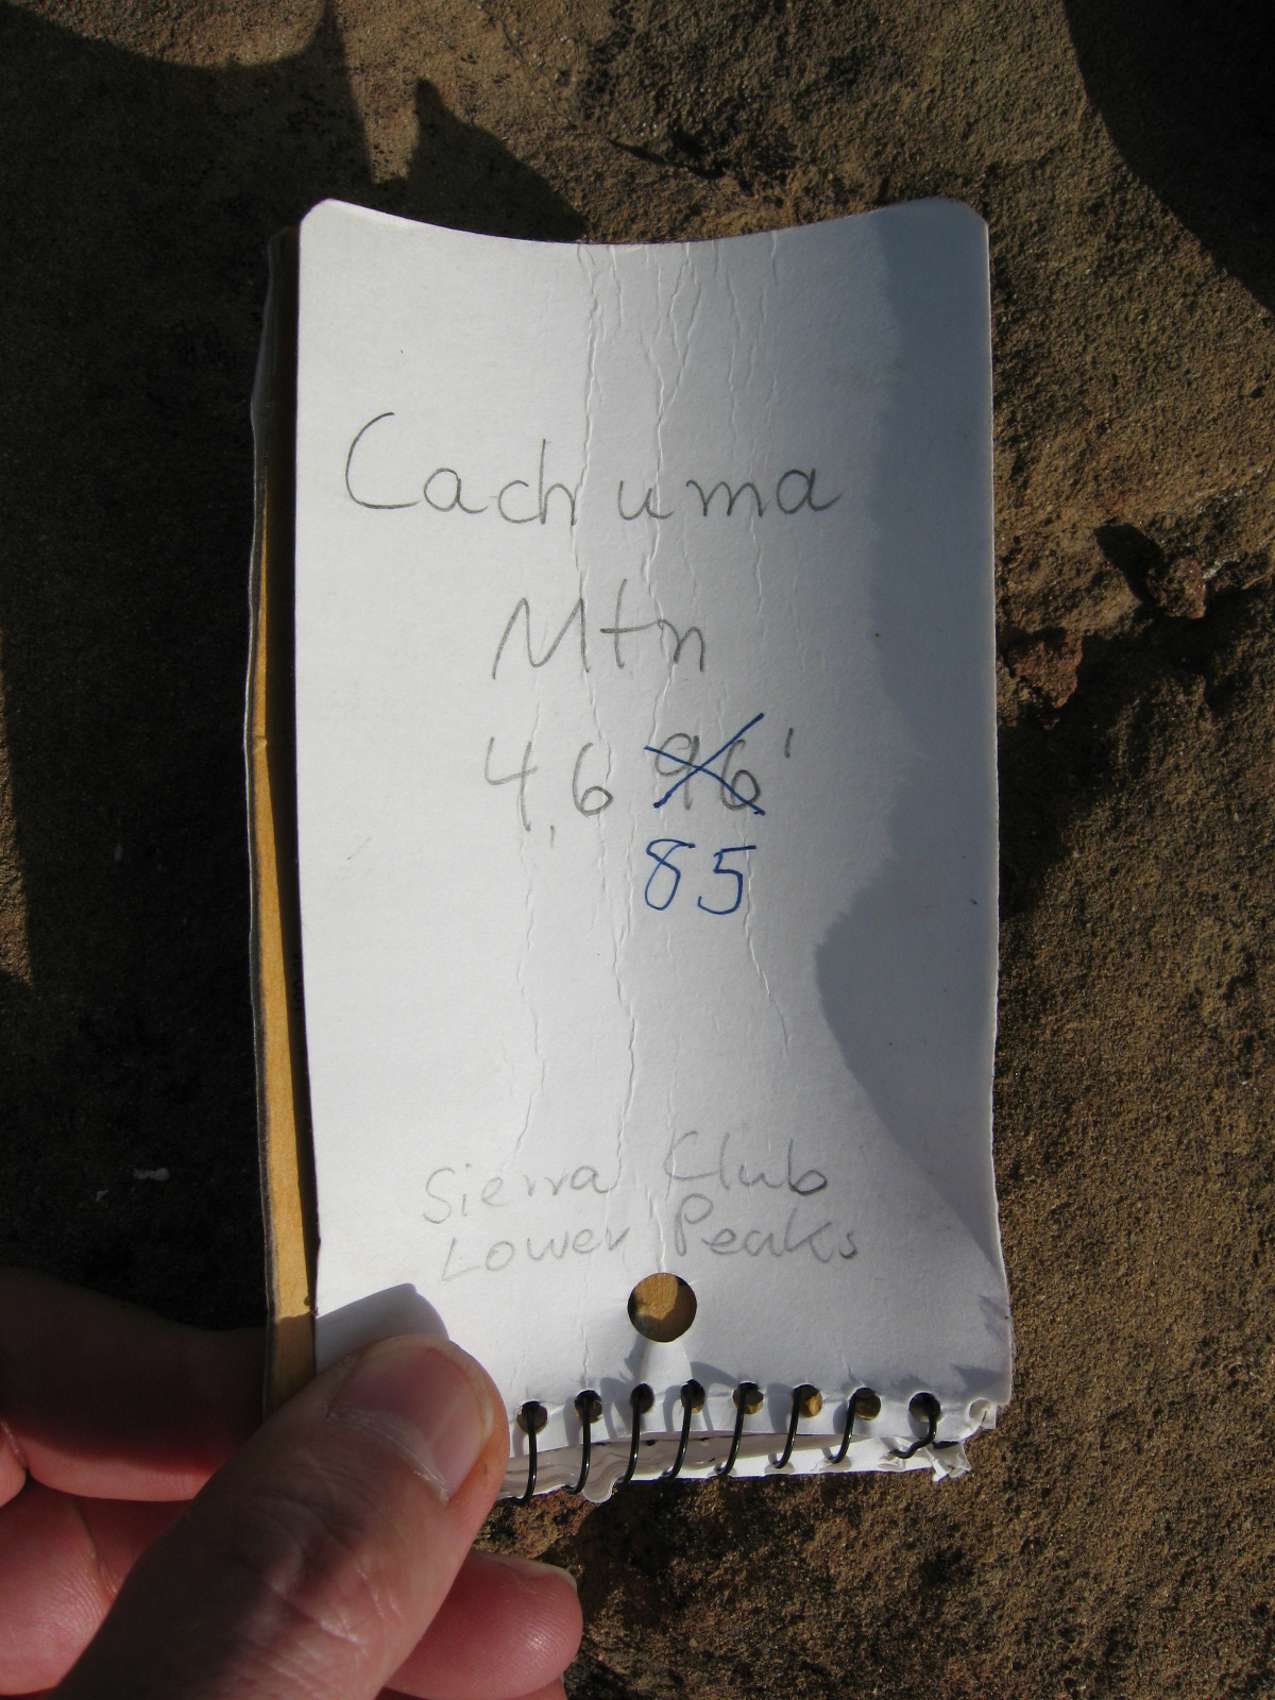 Cachuma
Mtn
4,696'
85
Sierra Club
Lower Peaks